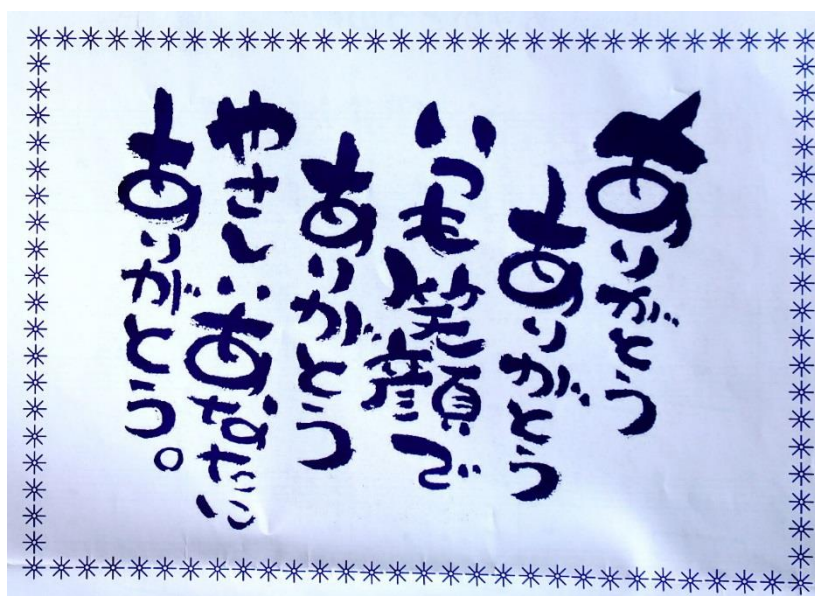 ありがとう
ありがとう
いつも笑顔で
ありがとう
やさしいあなたに
ありがとう。